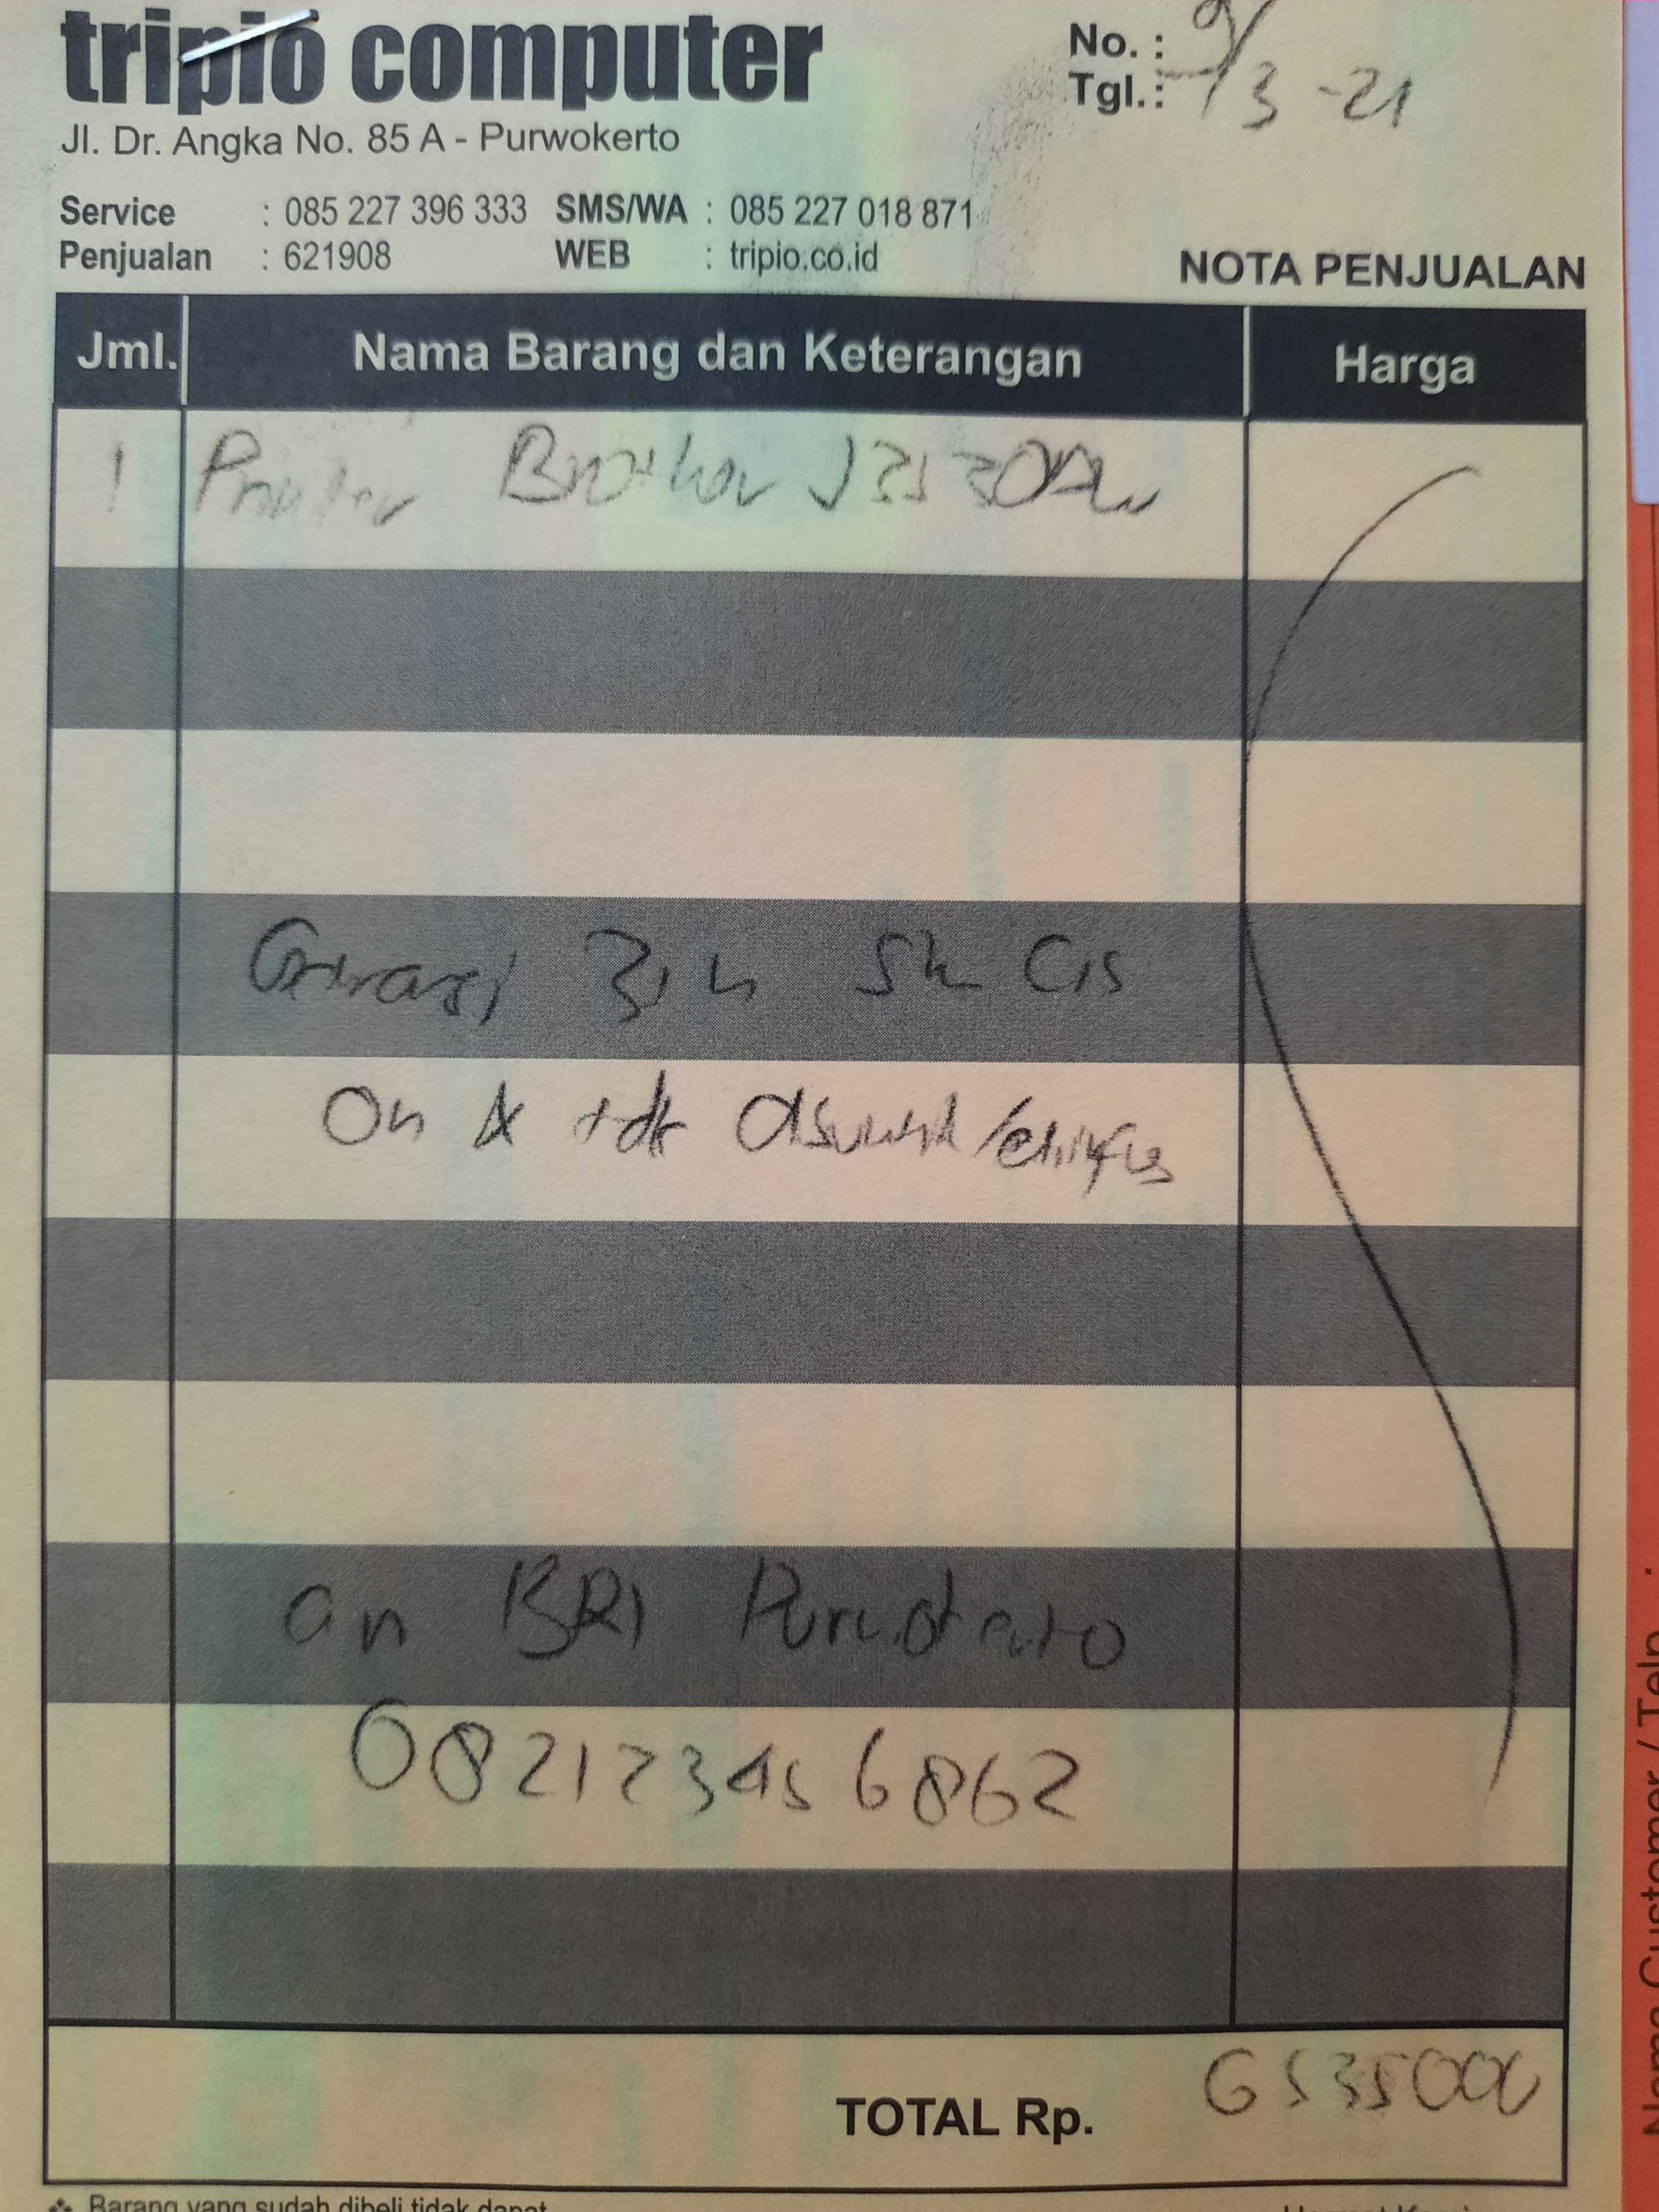 tripio computer
Jl. Dr. Angka No. 85 A - Purwokerto
No. :
Tgl.: 9/3-21
Service : 085 227 396 333 SMS/WA : 085 227 018 871
Penjualan : 621908 WEB : tripio.co.id
NOTA PENJUALAN
Jml. Nama Barang dan Keterangan Harga
1 Printer Brother
on & tdk
an BRI
082123456862
TOTAL Rp. 6535000
Barang yang sudah dibeli tidak dapat
Hormat Kami
Nama Customer / Telp